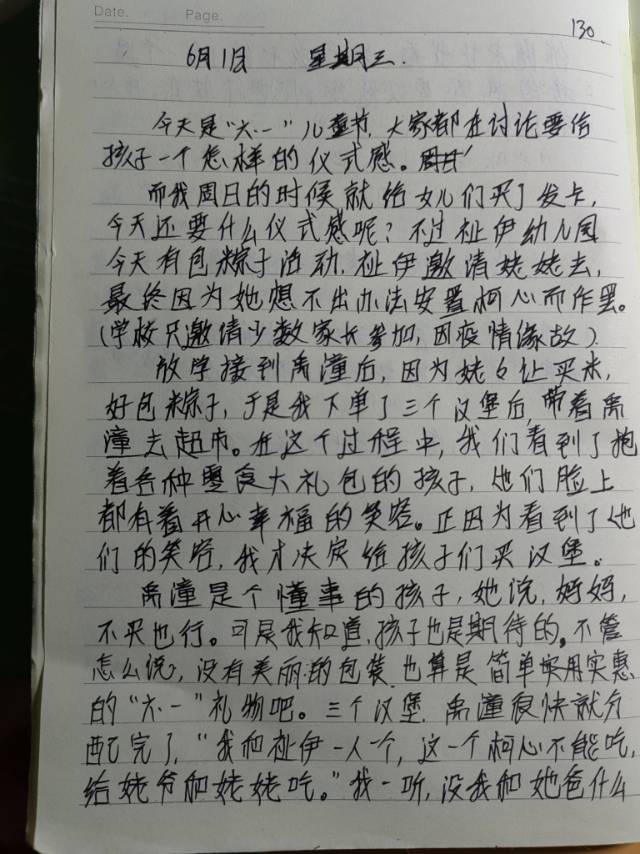 Date. Page.
130
6月1日 星期三.
今天是“六·一”儿童节，大家都在讨论要给
孩子一个怎样的仪式感。
而我周日的时候就给女儿们买了发卡，
今天还要什么仪式感呢？不过祉伊幼儿园
今天有包粽子活动，祉伊邀请姥姥去，
最终因为她想不出办法安置柯心而作罢。
(学校只邀请少数家长参加，因疫情缘故)
放学接到禹潼后，因为姥姥让买米，
好包粽子，于是我下单了三个汉堡后，带着禹
潼去超市。在这个过程中，我们看到了抱
着各种零食大礼包的孩子，他们脸上
都有着开心幸福的笑容。正因为看到了他
们的笑容，我才决定给孩子们买汉堡。
禹潼是个懂事的孩子，她说，妈妈，
不买也行。可是我知道，孩子也是期待的。不管
怎么说，没有美丽的包装，也算是简单实用实惠
的“六·一”礼物吧。三个汉堡，禹潼很快就分
配完了，“我和祉伊一人一个，这一个柯心不能吃，
给姥爷和姥姥吃。”我一听，没我和她爸什么